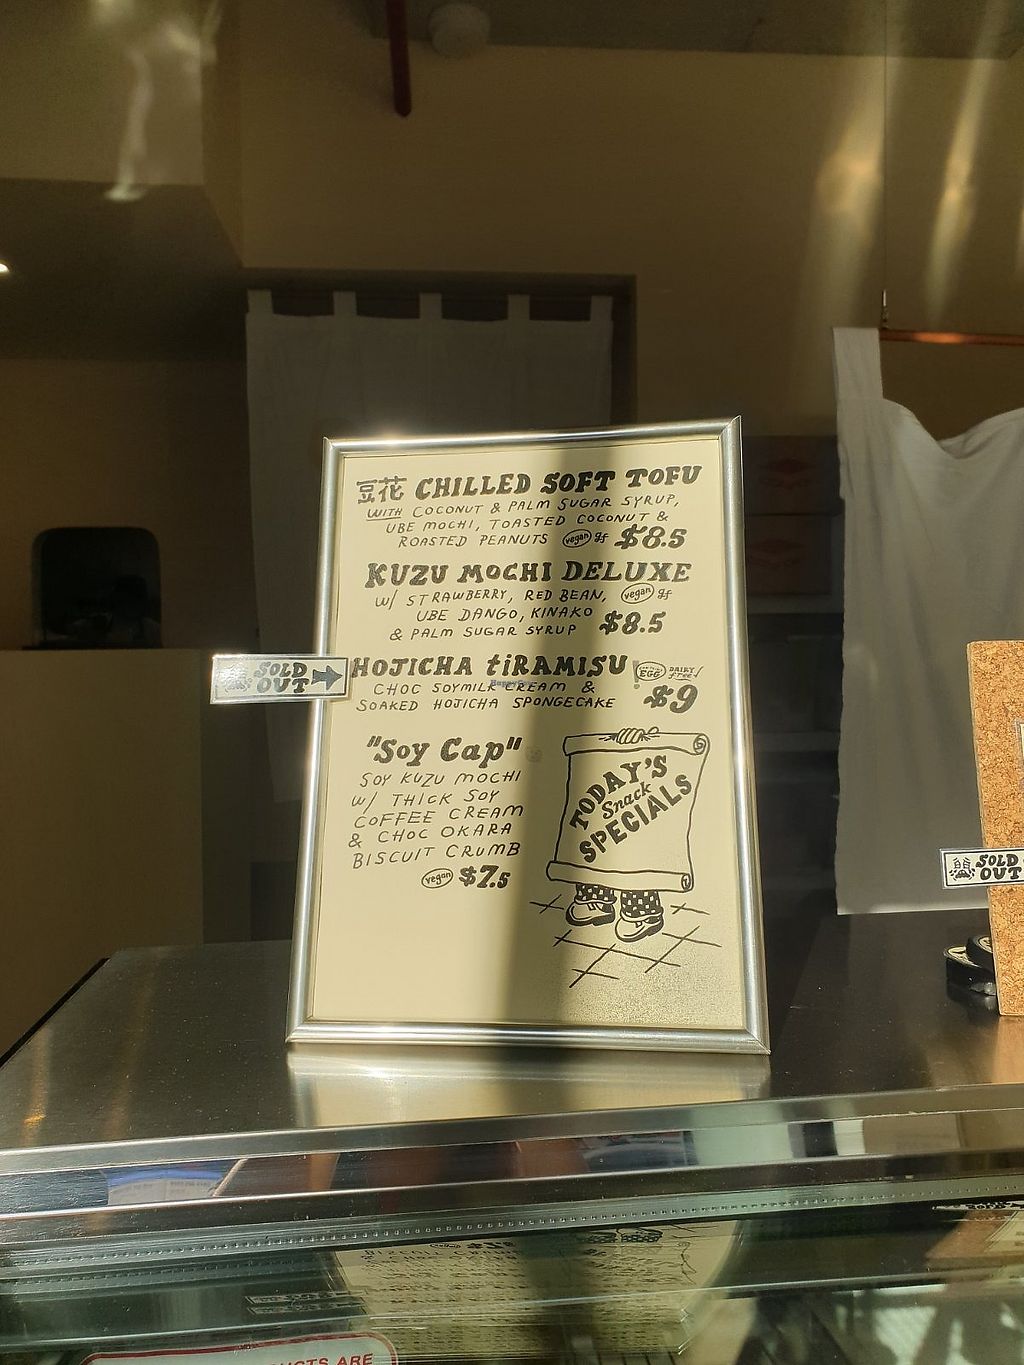 豆花 CHILLED SOFT TOFU
WITH COCONUT & PALM SUGAR SYRUP,
UBE MOCHI, TOASTED COCONUT &
ROASTED PEANUTS vegan gf $8.5
KUZU MOCHI DELUXE
W/ STRAWBERRY, RED BEAN, vegan gf
UBE DANGO, KINAKO
& PALM SUGAR SYRUP $8.5
SOLD OUT
HOJICHA TIRAMISU EGG DAIRY free
CHOC SOYMILK CREAM &
SOAKED HOJICHA SPONGECAKE $9
"Soy Cap"
SOY KUZU MOCHI
W/ THICK SOY
COFFEE CREAM
& CHOC OKARA
BISCUIT CRUMB
vegan $7.5
TODAY'S
Snack
SPECIALS
SOLD
OUT
HappyCow
ARE